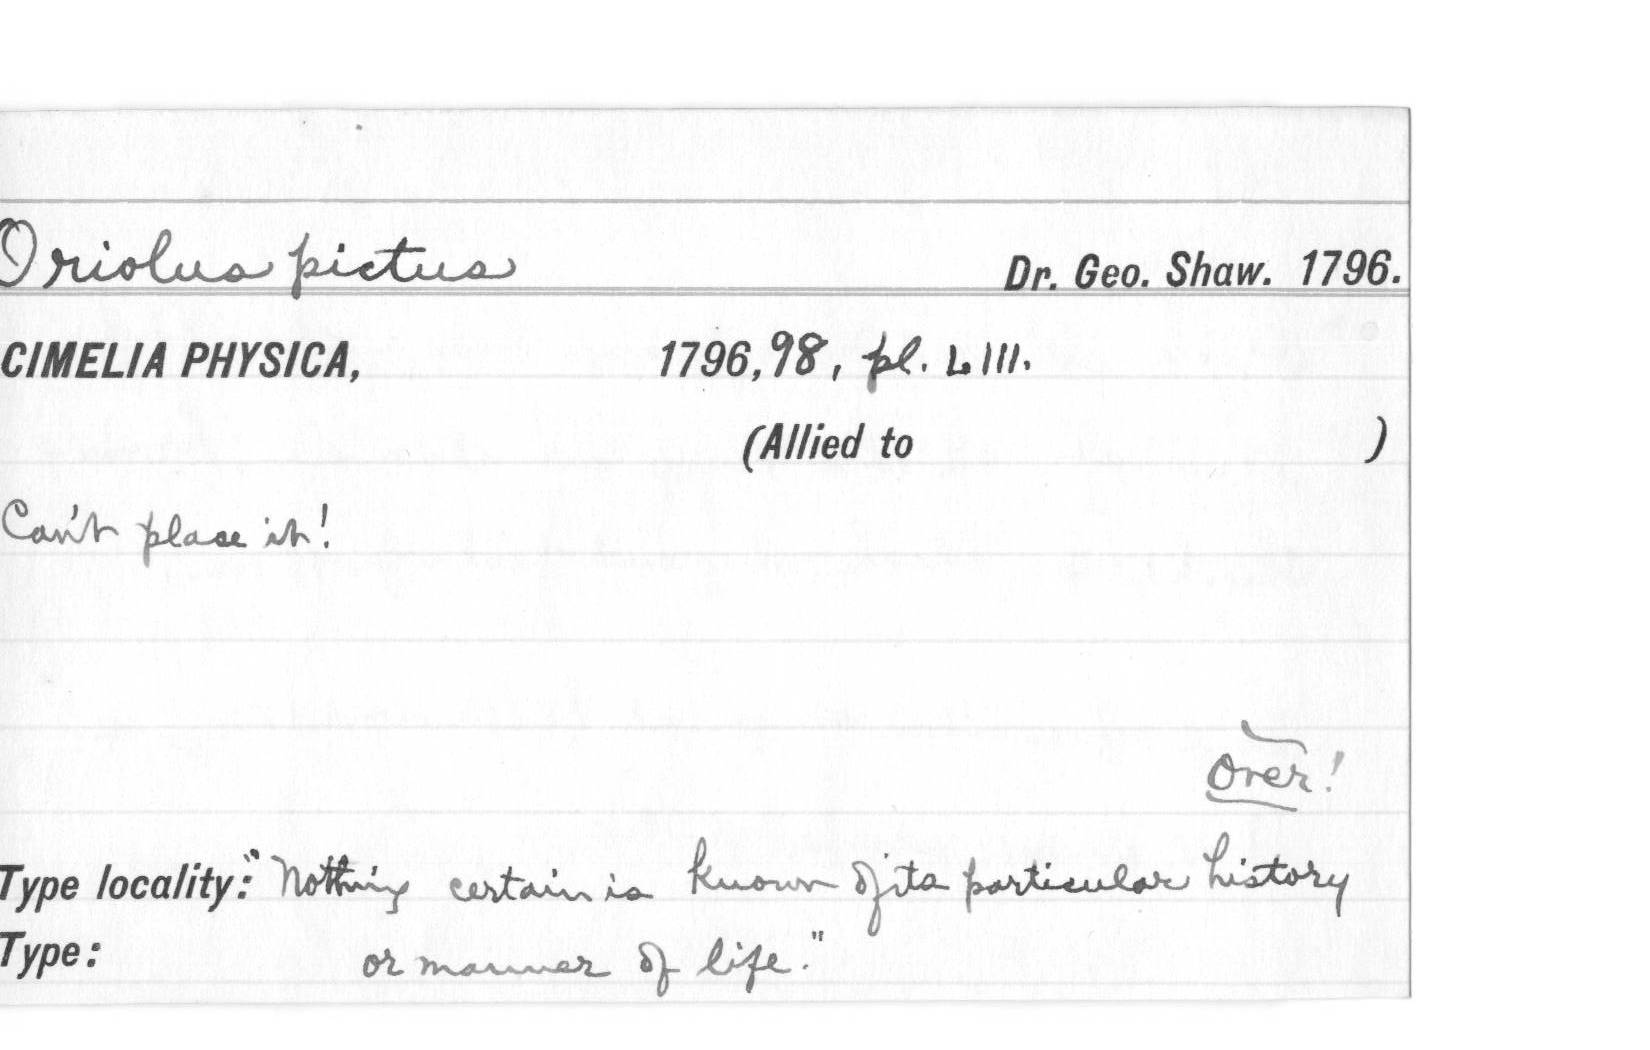 Oriolus pictus Dr. Geo. Shaw. 1796.
CIMELIA PHYSICA, 1796, 98, pl. LIII.
(Allied to )
Can't place it!
Over!
Type locality: "Nothing certain is known of its particular history
Type: or manner of life."